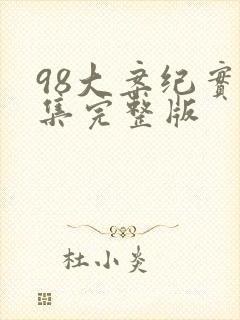 98大案纪实
集完整版
杜小炎